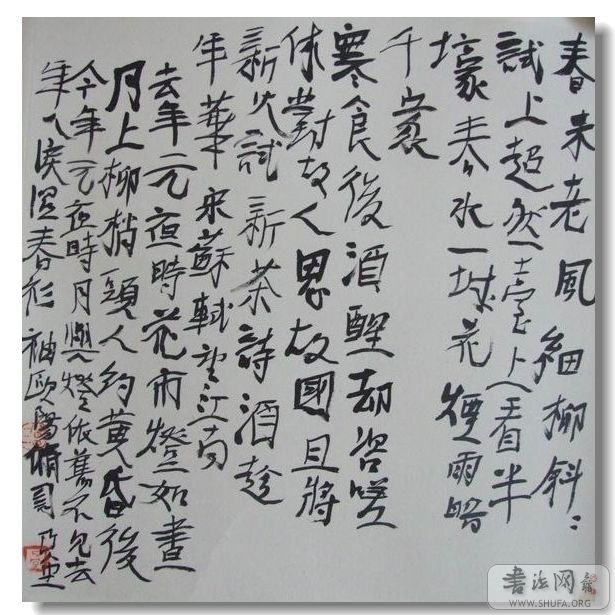 春未老風細柳斜〻
試上超然臺上看半
壕春水一城花煙雨暗
千家
寒食後酒醒却咨嗟
休對故人思故國且將
新火試新茶詩酒趁
年華 宋蘇軾望江南
去年元夜時花市燈如晝
月上柳梢頭人約黄昏後
今年元夜時月與燈依舊不見去
年人淚溼春衫袖 歐陽脩
书法网
WWW.SHUFA.ORG